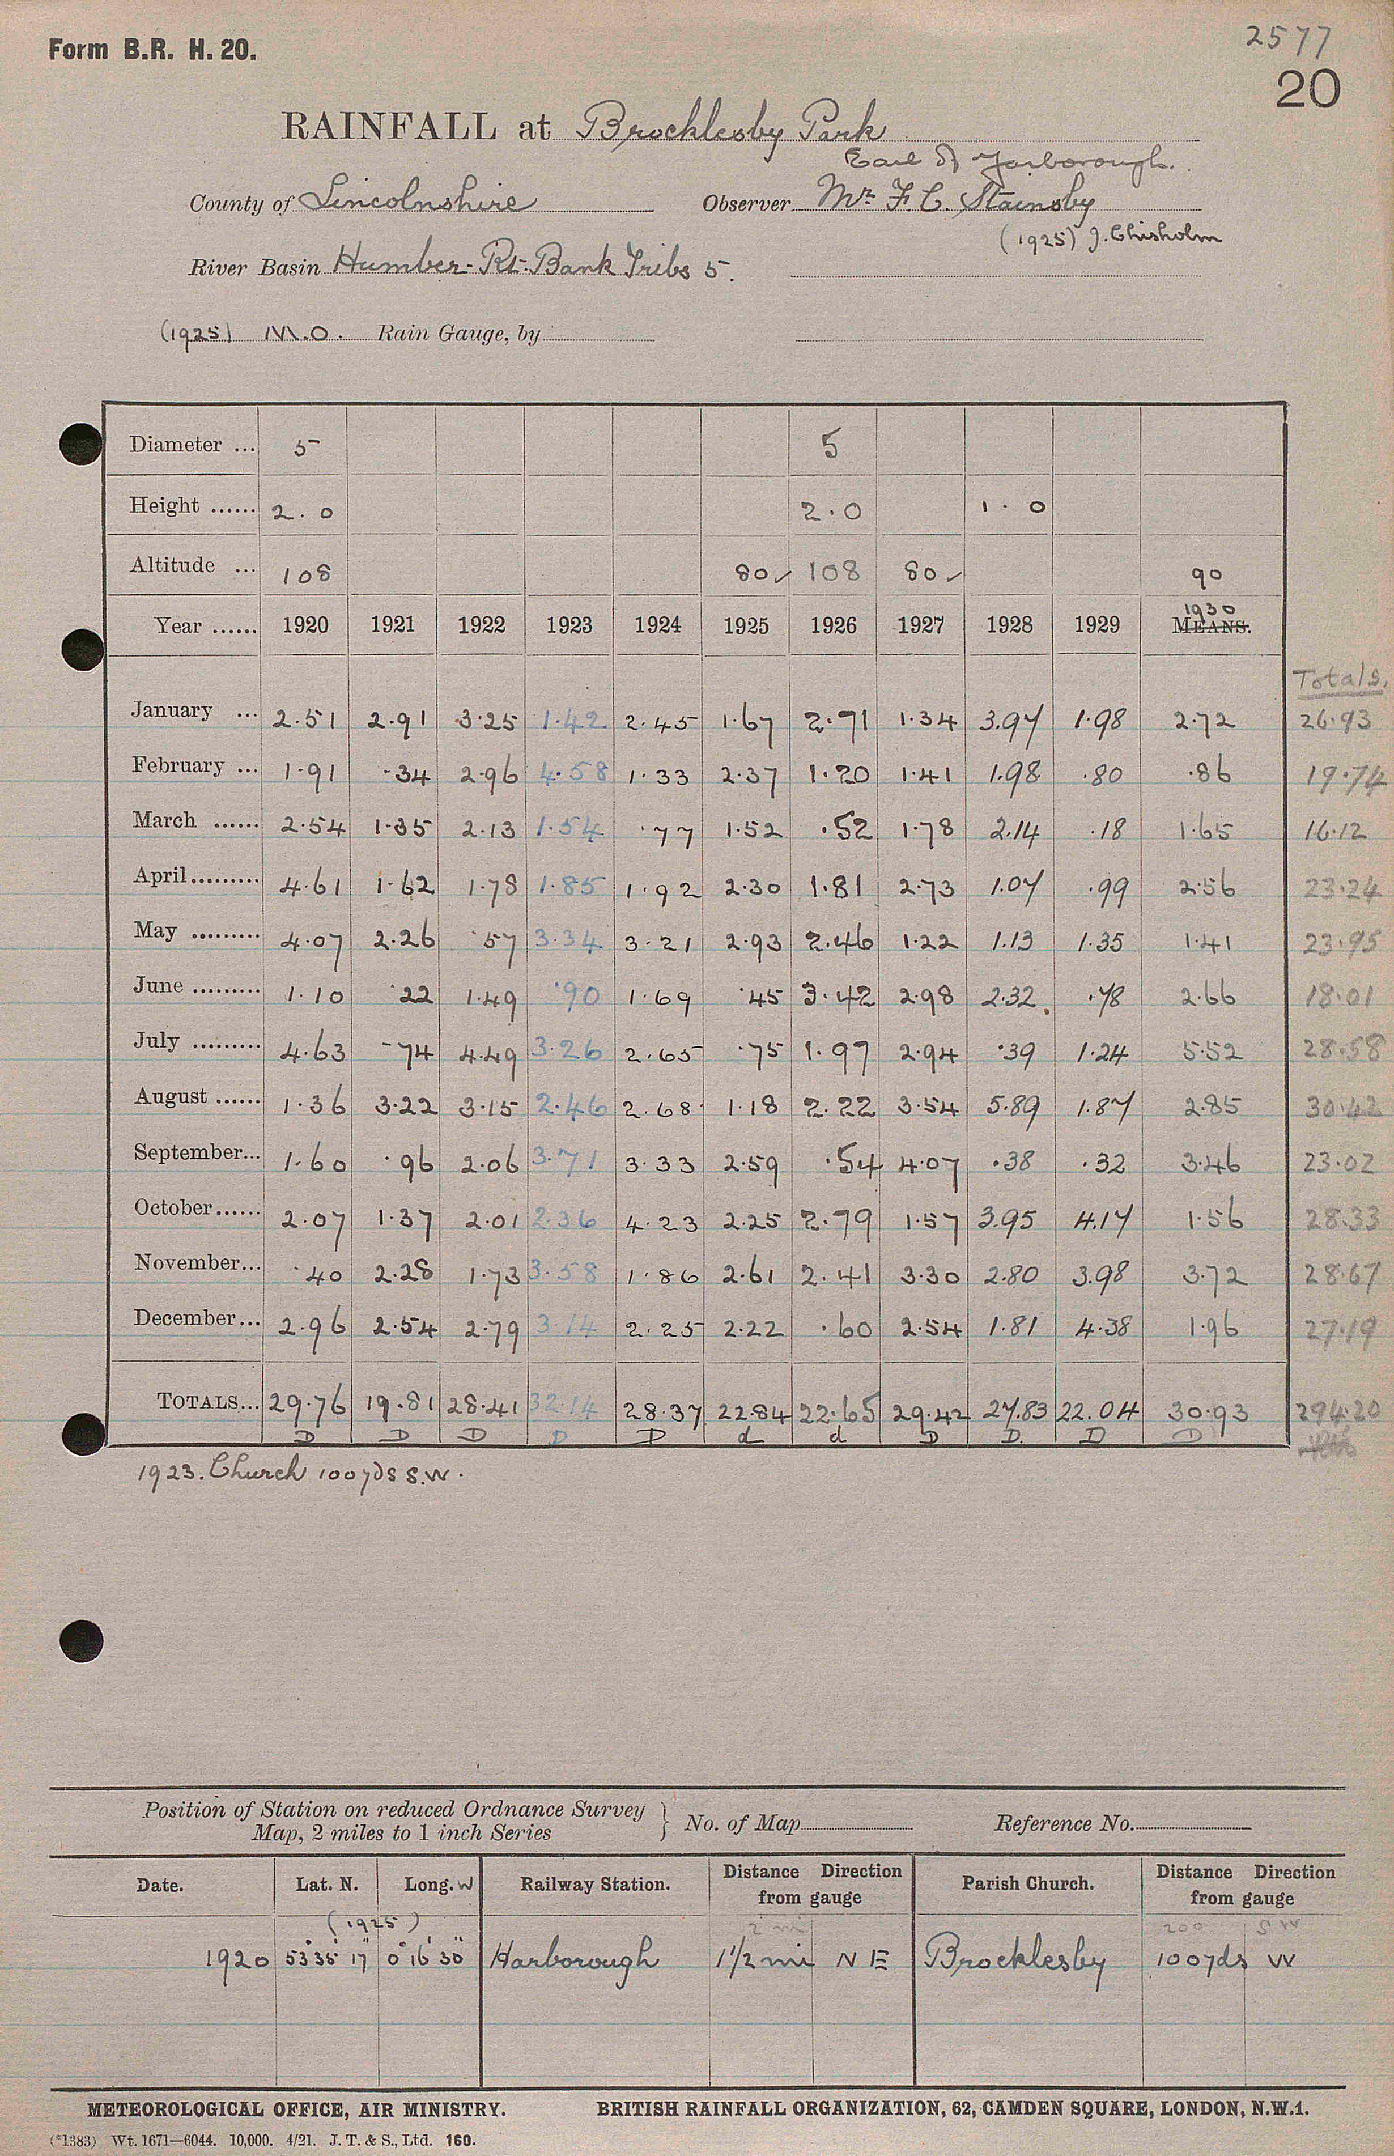 Form B.R. H. 20.
2577
20
RAINFALL at Brocklesby Park
Earl of Yarborough.
County of Lincolnshire Observer Mr. F. C. Stainsby
(1925) J. Chisholm
River Basin Humber-Rt-Bank Tribs 5.
(1925) M.O. Rain Gauge, by
Diameter ... 5 5
Height ...... 2.0 2.0 1.0
Altitude ... 108 80✓ 108 80✓ 90
1930
Year ...... 1920 1921 1922 1923 1924 1925 1926 1927 1928 1929 MEANS.
Totals.
January ... 2.51 2.91 3.25 1.42 2.45 1.67 2.71 1.34 3.97 1.98 2.72 26.93
February ... 1.91 .34 2.96 4.58 1.33 2.37 1.20 1.41 1.98 .80 .86 19.74
March ...... 2.54 1.35 2.13 1.54 .77 1.52 .52 1.78 2.14 .18 1.65 16.12
April......... 4.61 1.62 1.78 1.85 1.92 2.30 1.81 2.73 1.07 .99 2.56 23.24
May ......... 4.07 2.26 .57 3.34 3.21 2.93 2.46 1.22 1.13 1.35 1.41 23.95
June ......... 1.10 .22 1.49 .90 1.69 .45 3.42 2.98 2.32 .78 2.66 18.01
July ......... 4.63 .74 4.49 3.26 2.65 .75 1.97 2.94 .39 1.24 5.52 28.58
August ...... 1.36 3.22 3.15 2.46 2.68 1.18 2.22 3.54 5.89 1.87 2.85 30.42
September... 1.60 .96 2.06 3.71 3.33 2.59 .54 4.07 .38 .32 3.46 23.02
October...... 2.07 1.37 2.01 2.36 4.23 2.25 2.79 1.57 3.95 4.17 1.56 28.33
November... .40 2.28 1.73 3.58 1.86 2.61 2.41 3.30 2.80 3.98 3.72 28.67
December... 2.96 2.54 2.79 3.14 2.25 2.22 .60 2.54 1.81 4.38 1.96 27.19
TOTALS... 29.76 19.81 28.41 32.14 28.37 22.84 22.65 29.42 27.83 22.04 30.93 294.20
D D D D D d d D D. D D
1923. Church 100yds S.W.
Position of Station on reduced Ordnance Survey
Map, 2 miles to 1 inch Series } No. of Map Reference No.
Date. Lat. N. Long. W Railway Station. Distance Direction from gauge Parish Church. Distance Direction from gauge
(1925) 2 mi 200 SW
1920 53° 35' 17" 0° 16' 30" Harborough 1½ mi N E Brocklesby 100yds W
METEOROLOGICAL OFFICE, AIR MINISTRY. BRITISH RAINFALL ORGANIZATION, 62, CAMDEN SQUARE, LONDON, N.W.1.
(*1383) Wt. 1671—6044. 10,000. 4/21. J. T. & S., Ltd. 160.